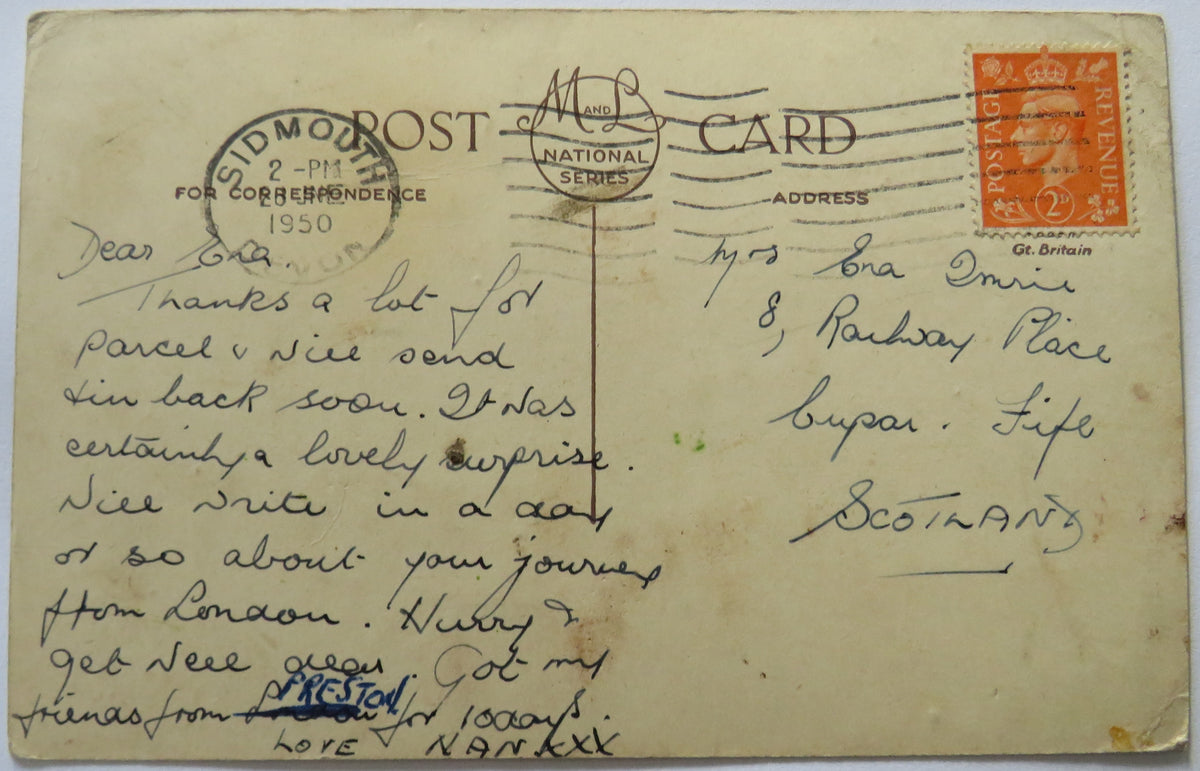 POST CARD
M AND L
NATIONAL
SERIES
SIDMOUTH
2 - PM
1950
DEVON
FOR CORRESPONDENCE
ADDRESS
POSTAGE REVENUE
2D
Gt. Britain
Dear Ena.
Thanks a lot for
parcel & will send
tin back soon. It was
certainly a lovely surprise.
Will write in a day
or so about your journey
from London. Hurry &
get well dear. Got my
friends from London PRESTON for 10 days.
LOVE NAN XXX
Mrs Ena Imrie
8, Railway Place
Cupar. Fife
SCOTLAND